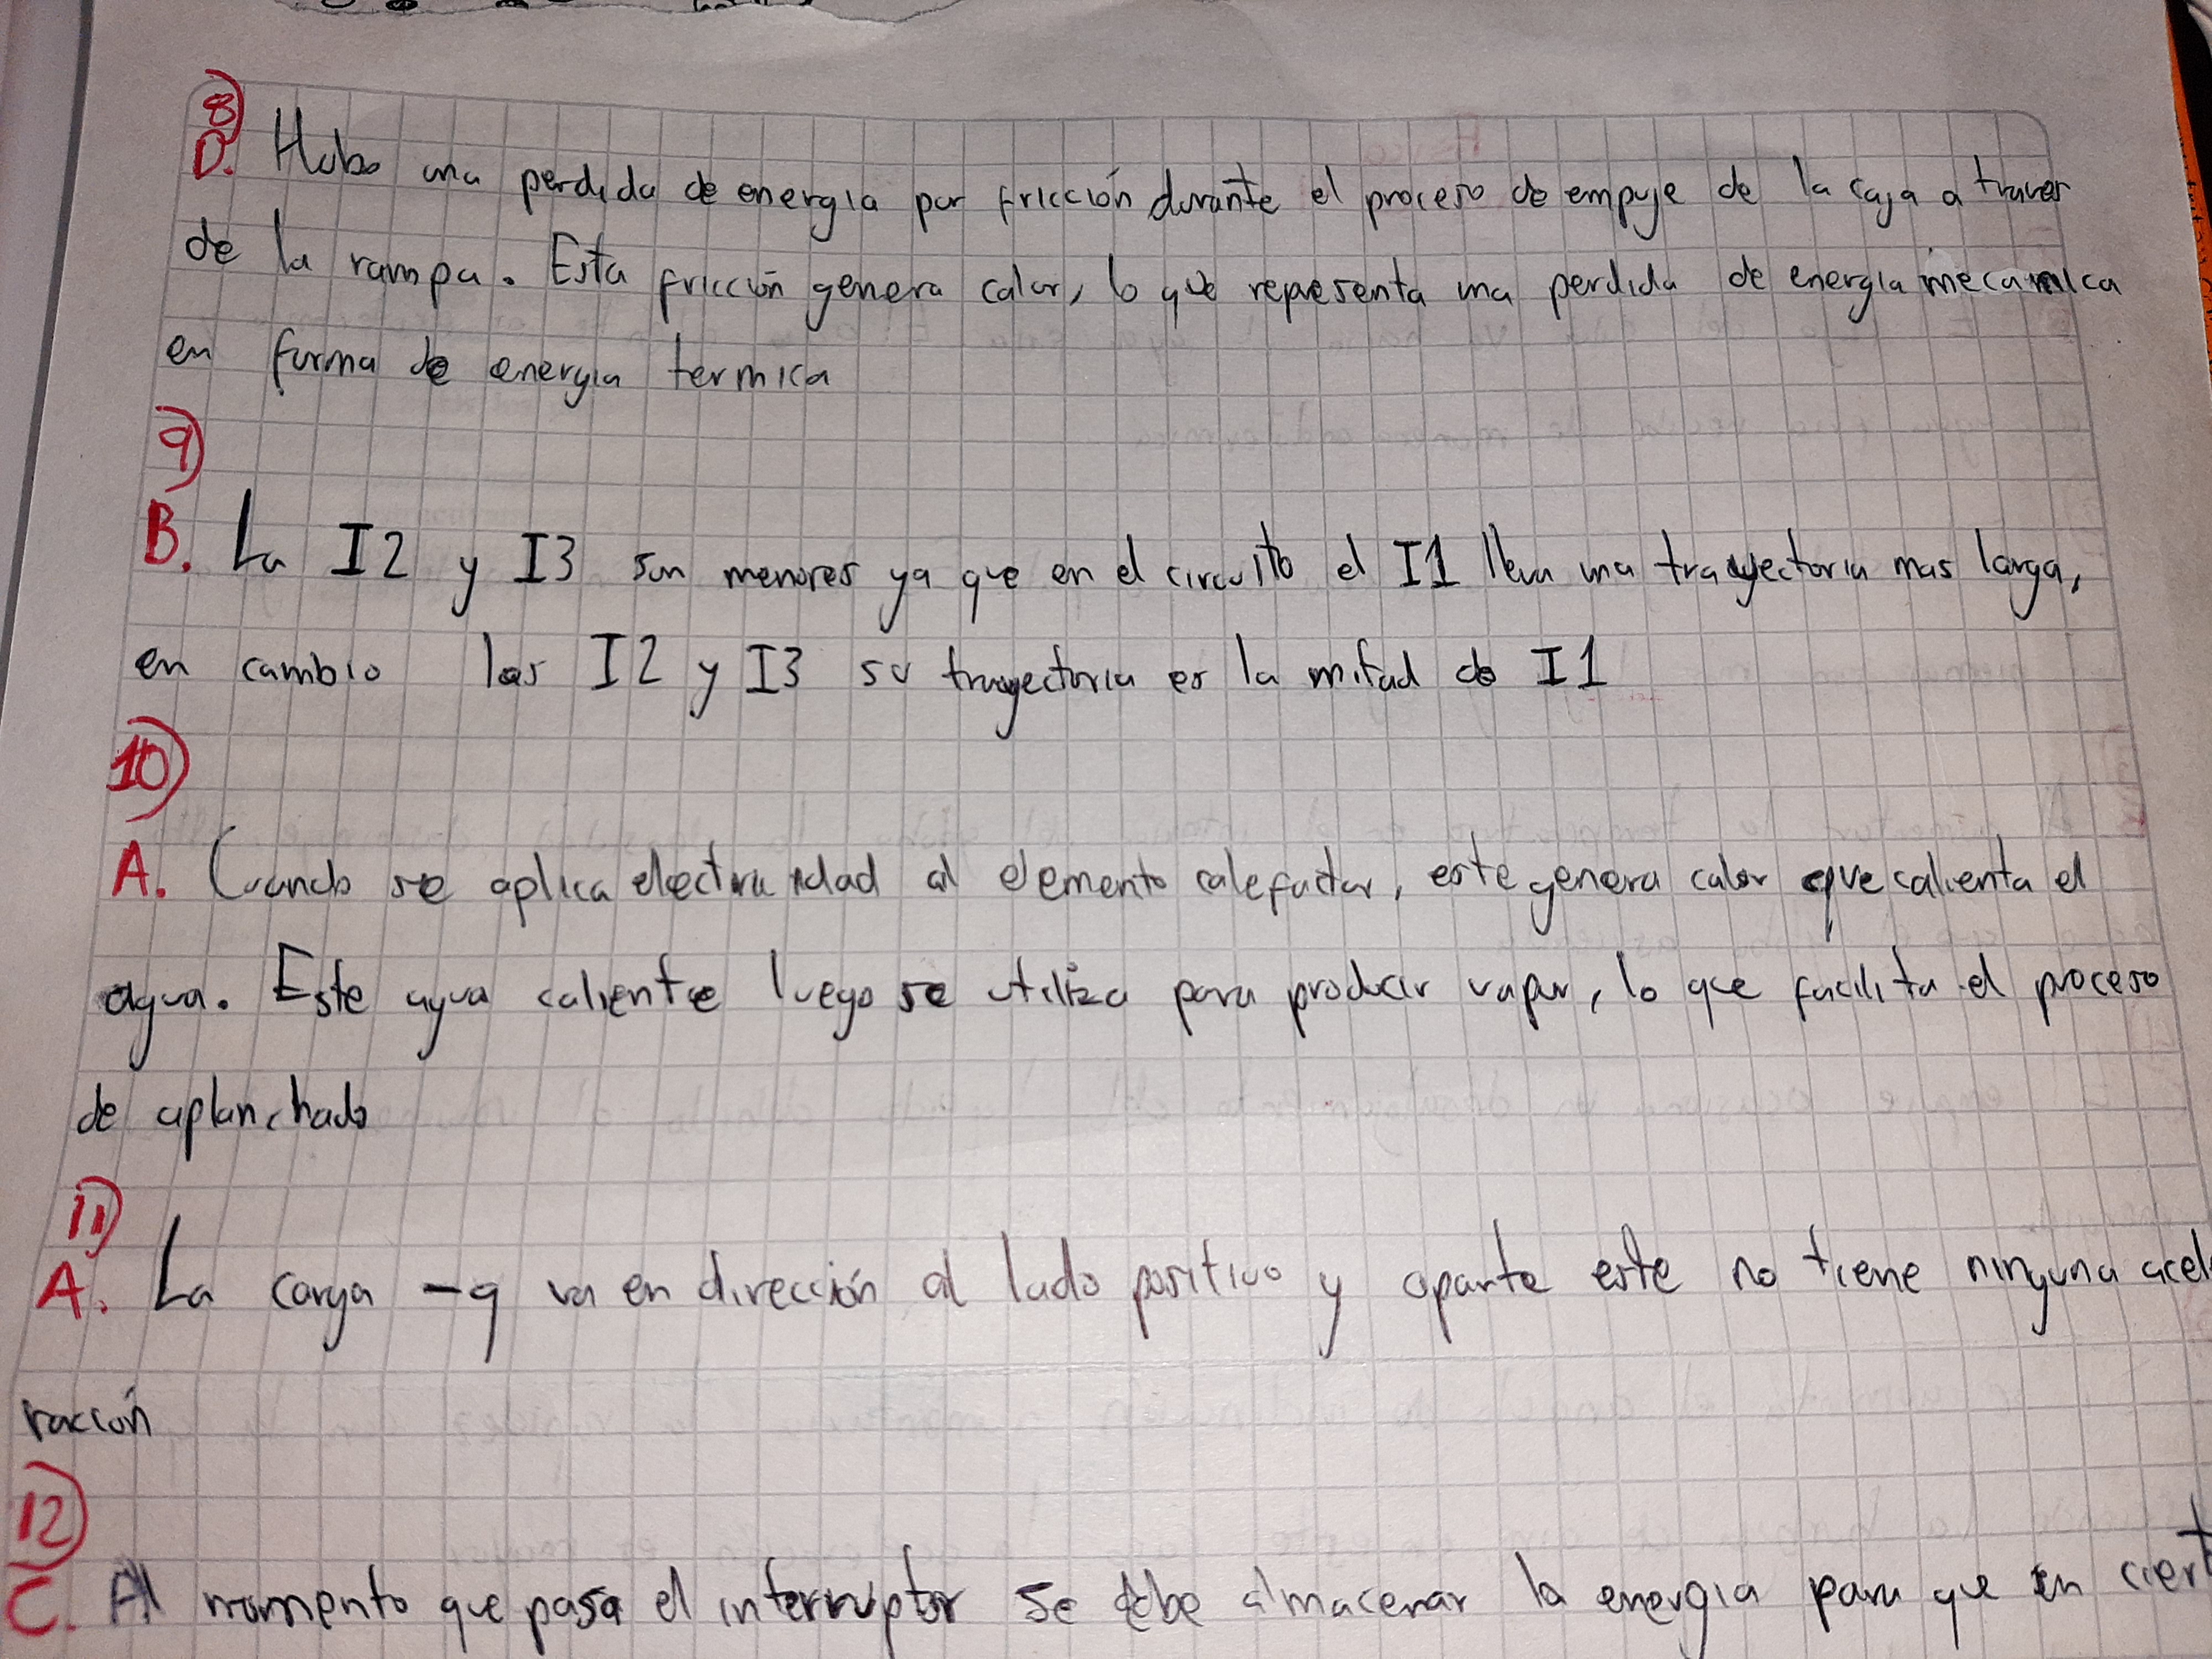 8)
D. Hubo una perdida de energia por fricción durante el proceso de empuje de la caja a traves
de la rampa. Esta fricción genera calor, lo que representa una perdida de energia mecanica
en forma de energia termica
9)
B. La I2 y I3 son menores ya que en el circuito el I1 lleva una trayectoria mas larga,
en cambio las I2 y I3 su trayectoria es la mitad de I1
10)
A. Cuando se aplica electricidad al elemento calefactor, este genera calor que calienta el
agua. Este agua caliente luego se utiliza para producir vapor, lo que facilita el proceso
de aplanchado
11)
A. La carga -q va en dirección al lado positivo y aparte este no tiene ninguna acele
ración
12)
C. Al momento que pasa el interruptor se debe almacenar la energia para que en ciert